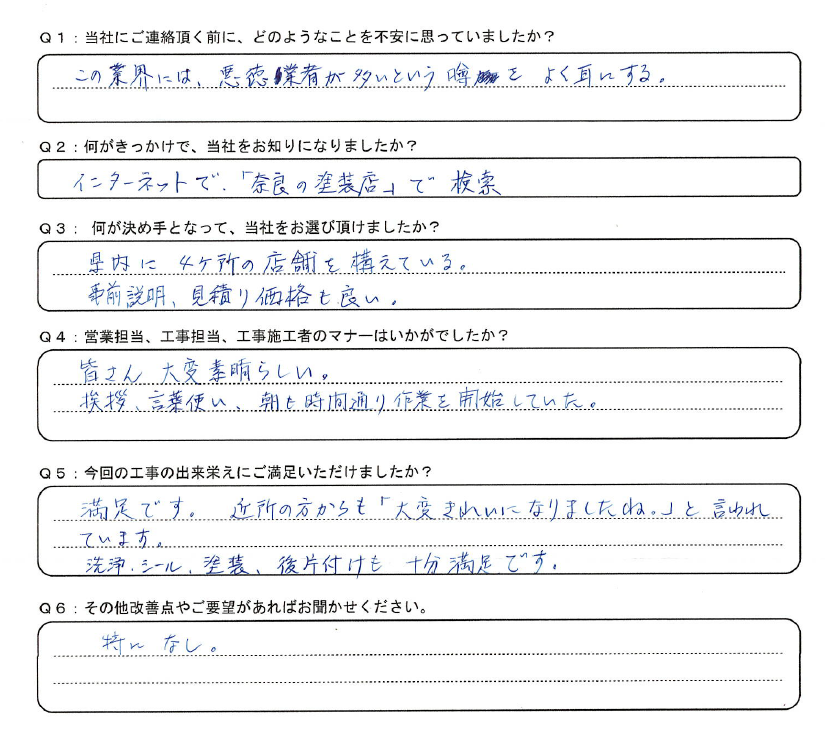 Q1：当社にご連絡頂く前に、どのようなことを不安に思っていましたか？
この業界には、悪徳業者が多いという噂をよく耳にする。
Q2：何がきっかけで、当社をお知りになりましたか？
インターネットで、「奈良の塗装店」で検索
Q3： 何が決め手となって、当社をお選び頂けましたか？
県内に4ケ所の店舗を構えている。
事前説明、見積り価格も良い。
Q4：営業担当、工事担当、工事施工者のマナーはいかがでしたか？
皆さん 大変素晴らしい。
挨拶、言葉使い、朝も時間通り作業を開始していた。
Q5：今回の工事の出来栄えにご満足いただけましたか？
満足です。 近所の方からも「大変きれいになりましたね。」と言われ
ています。
洗浄、シール、塗装、後片付けも 十分満足です。
Q6：その他改善点やご要望があればお聞かせください。
特になし。